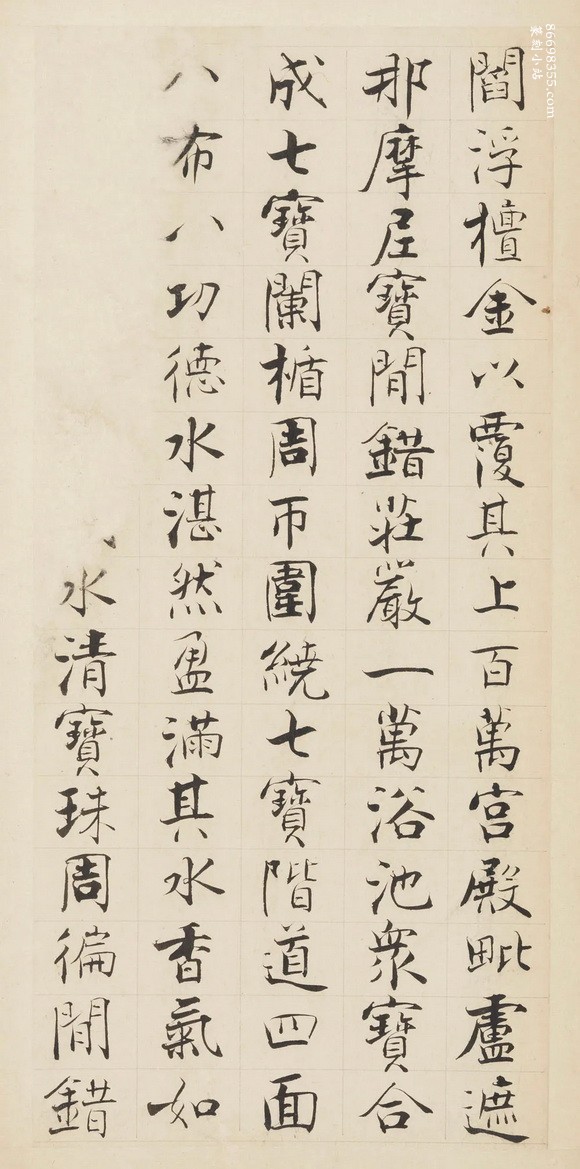 閻浮檀金以覆其上百萬宮殿毗盧遮
那摩尼寶間錯莊嚴一萬浴池衆寶合
成七寶闌楯周帀圍繞七寶階道四面
八布八功德水湛然盈滿其水香氣如
水清寶珠周徧間錯
86698355.com
篆刻小站